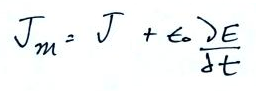 Jₘ = J + ε₀ ∂E/∂t